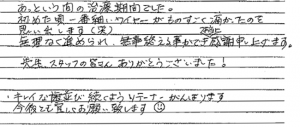 あっという間の治療期間でした。
初めた頃一番細いワイヤーがものすごく痛かったのを
思い出します(笑)
無理なく進められ、無事終える事ができ感謝申し上げます。
先生、スタッフの皆さんありがとうございました!
・キレイな歯並び続くようリテーナーがんばります
今後とも宜しくお願い致します